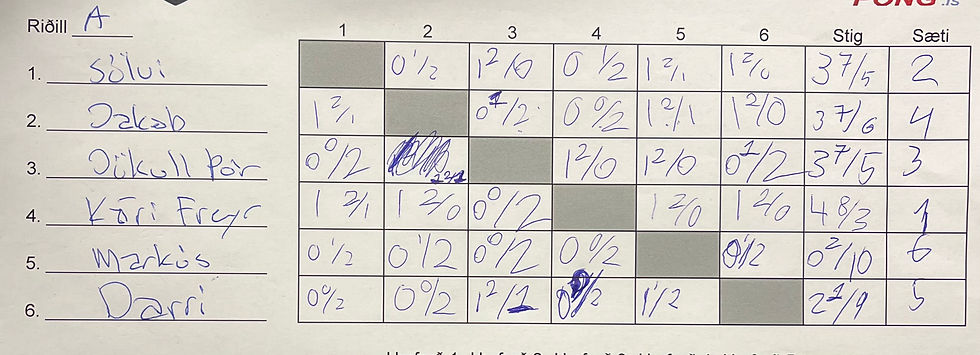 PONG.is
Riðill A
1 2 3 4 5 6 Stig Sæti
1. Sölvi 0 1/2 1 2/0 0 1/2 1 2/1 1 2/0 3 7/5 2
2. Jakob 1 2/1 0 1/2 0 0/2 1 2/1 1 2/0 3 7/6 4
3. Jökull Þór 0 0/2 1 2/1 1 2/0 1 2/0 0 1/2 3 7/5 3
4. Kári Freyr 1 2/1 1 2/0 0 0/2 1 2/0 1 2/0 4 8/3 1
5. Markús 0 1/2 0 1/2 0 0/2 0 0/2 0 2/10 6
6. Darri 0 0/2 0 0/2 1 2/1 0 0/2 1 1/2 2 1/9 5